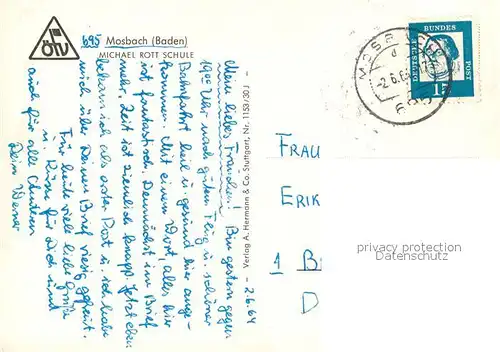 ÖTV
695 Mosbach (Baden)
MICHAEL ROTT SCHULE
2.6.64
Mein liebes Frauchen! Bin gestern gegen
19 Uhr nach gutem Flug u. schöner
Bahnfahrt heil u. gesund hier ange-
kommen. Mit einem Wort, alles hier
ist fantastisch. Demnächst im Brief
mehr. Zeit ist ziemlich knapp. Jetzt eben
bekam ich als erster Post u. ich habe
mich über Deinen Brief riesig gefreut.
Für heute viele liebe Grüße
u. Küsse für Dich und
auch für alle
Dein Werner
- Verlag A. Hermann & Co. Stuttgart, Nr. 1153/30J -
DEUTSCHE BUNDESPOST
MOSBACH
d
-2.6.64
695
FRAU
ERIK
1 B
D
privacy protection
Datenschutz